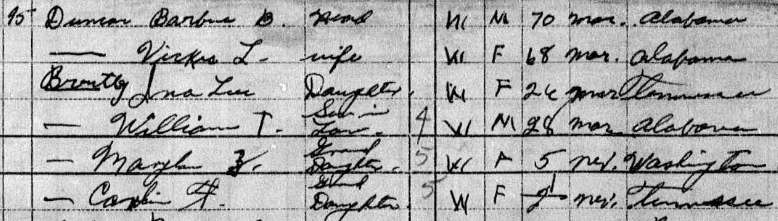 95 Duncan Barbus B. Head W M 70 mar. Alabama
— L. wife W F 68 mar. Alabama
Ina Lee Daughter. W F 26 mar Tennessee
— William T. Son in Law. 4 W M 28 mar. Alabama
— Marylin Grand Daughter. 5 W F 5 nev. Washington
— H. Grand Daughter. 5 W F 2 nev. Tennessee